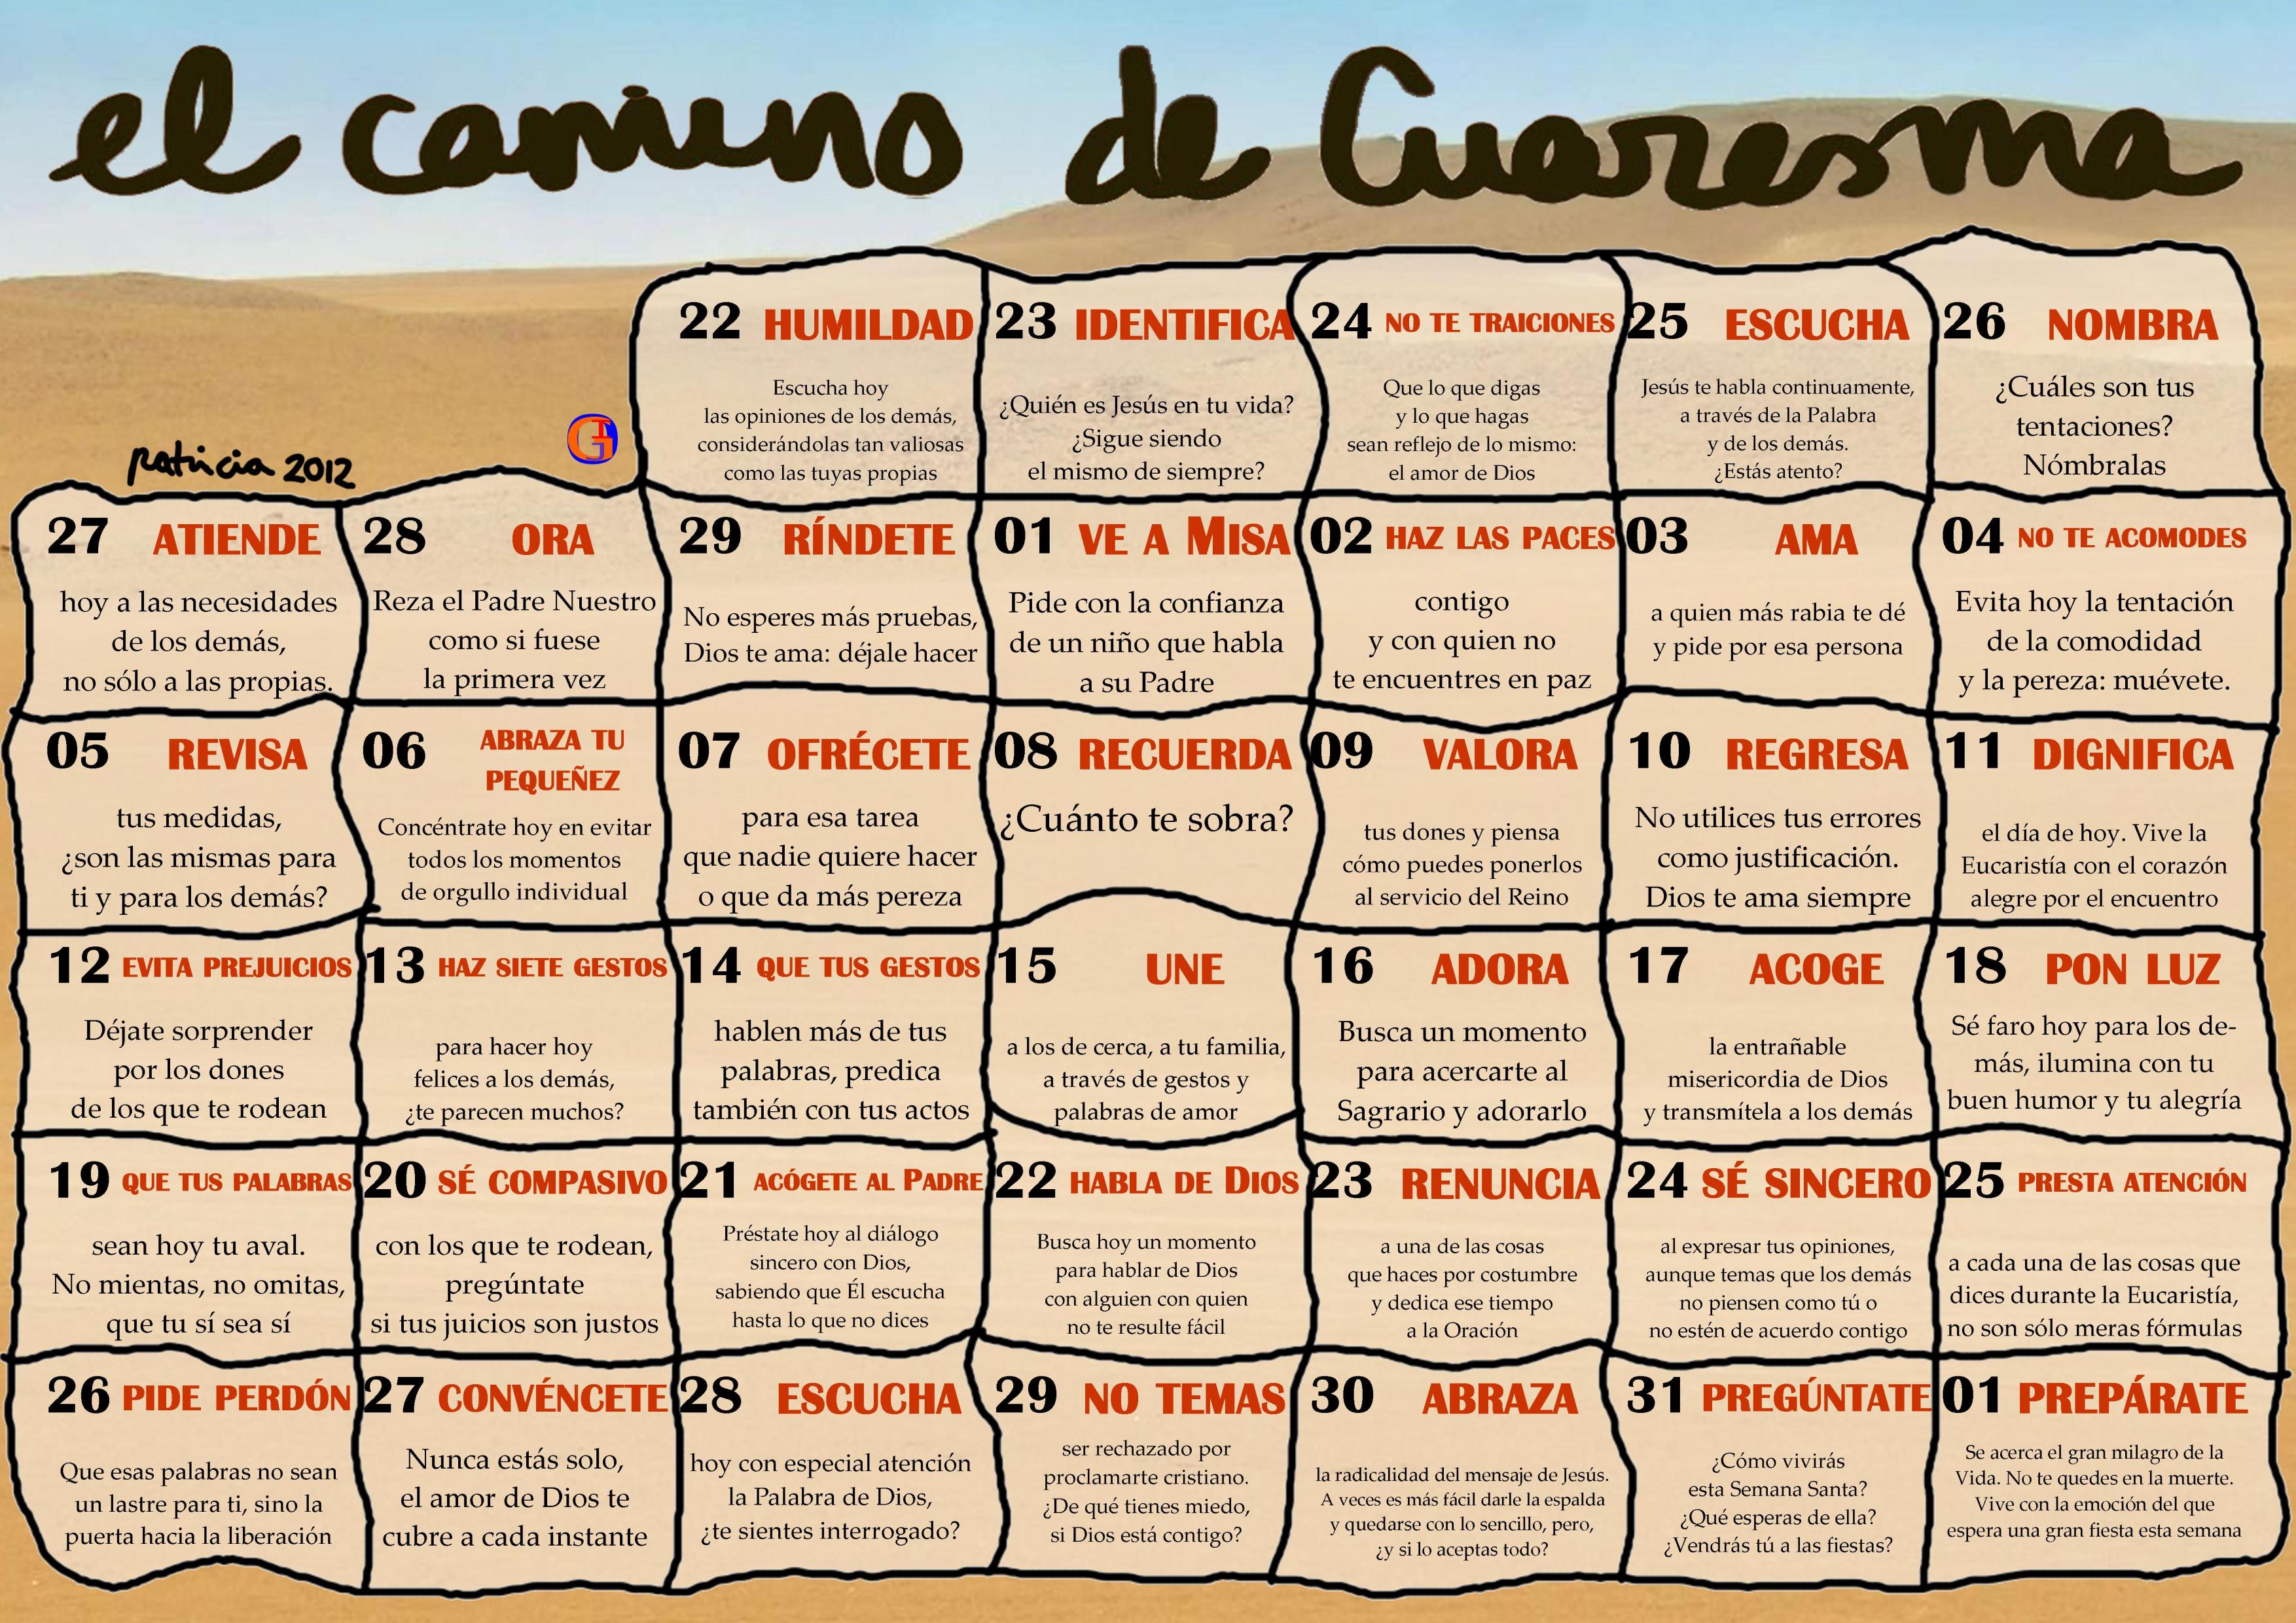 el camino de Cuaresma
patricia 2012
22 HUMILDAD
Escucha hoy
las opiniones de los demás,
considerándolas tan valiosas
como las tuyas propias
23 IDENTIFICA
¿Quién es Jesús en tu vida?
¿Sigue siendo
el mismo de siempre?
24 NO TE TRAICIONES
Que lo que digas
y lo que hagas
sean reflejo de lo mismo:
el amor de Dios
25 ESCUCHA
Jesús te habla continuamente,
a través de la Palabra
y de los demás.
¿Estás atento?
26 NOMBRA
¿Cuáles son tus
tentaciones?
Nómbralas
27 ATIENDE
hoy a las necesidades
de los demás,
no sólo a las propias.
28 ORA
Reza el Padre Nuestro
como si fuese
la primera vez
29 RÍNDETE
No esperes más pruebas,
Dios te ama: déjale hacer
01 VE A MISA
Pide con la confianza
de un niño que habla
a su Padre
02 HAZ LAS PACES
contigo
y con quien no
te encuentres en paz
03 AMA
a quien más rabia te dé
y pide por esa persona
04 NO TE ACOMODES
Evita hoy la tentación
de la comodidad
y la pereza: muévete.
05 REVISA
tus medidas,
¿son las mismas para
ti y para los demás?
06 ABRAZA TU
PEQUEÑEZ
Concéntrate hoy en evitar
todos los momentos
de orgullo individual
07 OFRÉCETE
para esa tarea
que nadie quiere hacer
o que da más pereza
08 RECUERDA
¿Cuánto te sobra?
09 VALORA
tus dones y piensa
cómo puedes ponerlos
al servicio del Reino
10 REGRESA
No utilices tus errores
como justificación.
Dios te ama siempre
11 DIGNIFICA
el día de hoy. Vive la
Eucaristía con el corazón
alegre por el encuentro
12 EVITA PREJUICIOS
Déjate sorprender
por los dones
de los que te rodean
13 HAZ SIETE GESTOS
para hacer hoy
felices a los demás,
¿te parecen muchos?
14 QUE TUS GESTOS
hablen más de tus
palabras, predica
también con tus actos
15 UNE
a los de cerca, a tu familia,
a través de gestos y
palabras de amor
16 ADORA
Busca un momento
para acercarte al
Sagrario y adorarlo
17 ACOGE
la entrañable
misericordia de Dios
y transmítela a los demás
18 PON LUZ
Sé faro hoy para los de-
más, ilumina con tu
buen humor y tu alegría
19 QUE TUS PALABRAS
sean hoy tu aval.
No mientas, no omitas,
que tu sí sea sí
20 SÉ COMPASIVO
con los que te rodean,
pregúntate
si tus juicios son justos
21 ACÓGETE AL PADRE
Préstate hoy al diálogo
sincero con Dios,
sabiendo que Él escucha
hasta lo que no dices
22 HABLA DE DIOS
Busca hoy un momento
para hablar de Dios
con alguien con quien
no te resulte fácil
23 RENUNCIA
a una de las cosas
que haces por costumbre
y dedica ese tiempo
a la Oración
24 SÉ SINCERO
al expresar tus opiniones,
aunque temas que los demás
no piensen como tú o
no estén de acuerdo contigo
25 PRESTA ATENCIÓN
a cada una de las cosas que
dices durante la Eucaristía,
no son sólo meras fórmulas
26 PIDE PERDÓN
Que esas palabras no sean
un lastre para ti, sino la
puerta hacia la liberación
27 CONVÉNCETE
Nunca estás solo,
el amor de Dios te
cubre a cada instante
28 ESCUCHA
hoy con especial atención
la Palabra de Dios,
¿te sientes interrogado?
29 NO TEMAS
ser rechazado por
proclamarte cristiano.
¿De qué tienes miedo,
si Dios está contigo?
30 ABRAZA
la radicalidad del mensaje de Jesús.
A veces es más fácil darle la espalda
y quedarse con lo sencillo, pero,
¿y si lo aceptas todo?
31 PREGÚNTATE
¿Cómo vivirás
esta Semana Santa?
¿Qué esperas de ella?
¿Vendrás tú a las fiestas?
01 PREPÁRATE
Se acerca el gran milagro de la
Vida. No te quedes en la muerte.
Vive con la emoción del que
espera una gran fiesta esta semana